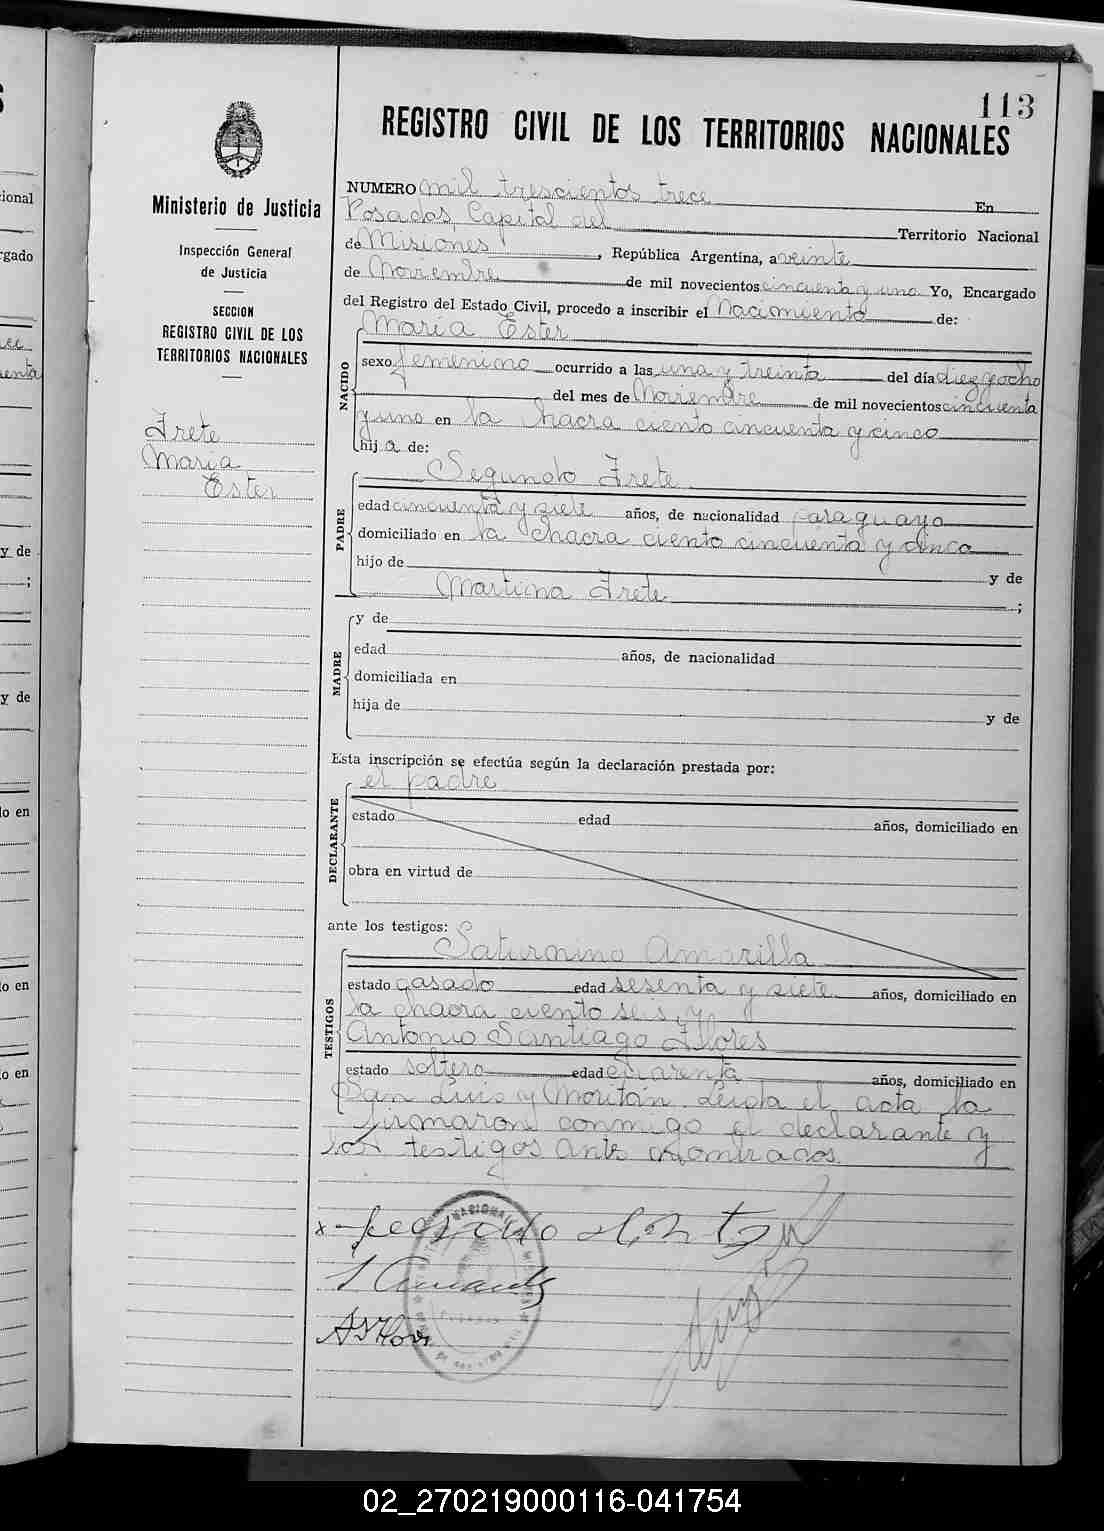 113
REGISTRO CIVIL DE LOS TERRITORIOS NACIONALES
Ministerio de Justicia
Inspección General
de Justicia
SECCION
REGISTRO CIVIL DE LOS
TERRITORIOS NACIONALES
Frete
Maria
Ester
NUMERO mil trescientos trece En
Posadas, Capital del Territorio Nacional
de Misiones, República Argentina, a veinte
de Noviembre de mil novecientos cincuenta y uno Yo, Encargado
del Registro del Estado Civil, procedo a inscribir el Nacimiento de:
Maria Ester
NACIDO
sexo femenino ocurrido a las una y treinta del día dieziocho
del mes de Noviembre de mil novecientos cincuenta
y uno en la chacra ciento cincuenta y cinco
hija de:
Segundo Frete
PADRE
edad cincuenta y siete años, de nacionalidad paraguayo
domiciliado en la chacra ciento cincuenta y cinco
hijo de y de
Martina Frete ;
MADRE
y de
edad años, de nacionalidad
domiciliada en
hija de y de
Esta inscripción se efectúa según la declaración prestada por:
el padre
DECLARANTE
estado edad años, domiciliado en
obra en virtud de
ante los testigos:
Saturnino Amarilla
TESTIGOS
estado casado edad sesenta y siete años, domiciliado en
la chacra ciento seis, y
Antonio Santiago Flores
estado soltero edad cuarenta años, domiciliado en
San Luis y Moritán. Leida el acta la
firmaron conmigo el declarante y
los testigos antes nombrados.
02_270219000116-041754